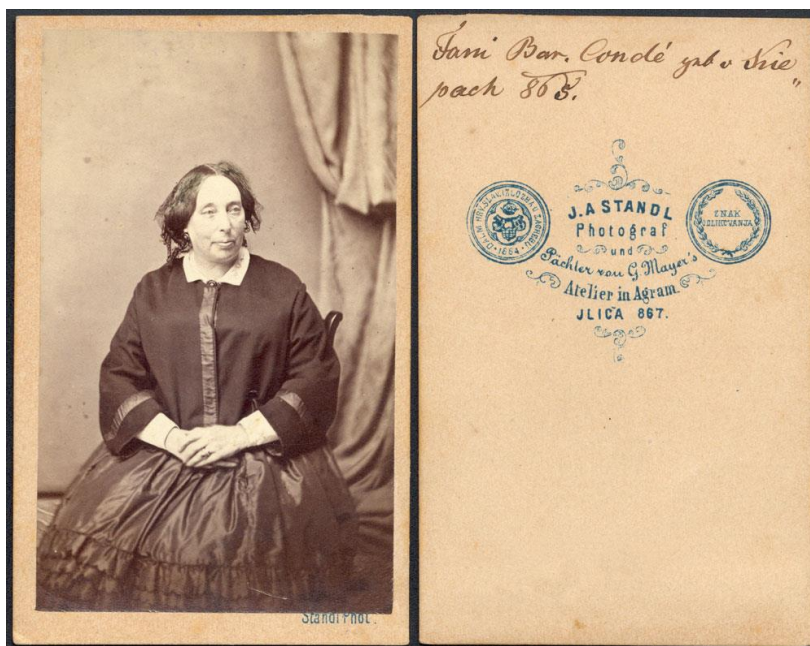 Standl Phot.
Fani Bar. Condé geb v
pach 865.
J. A STANDL
Photograf
und
Pächter von G. Mayer's
Atelier in Agram.
JLICA 867.
1864
ZNAK